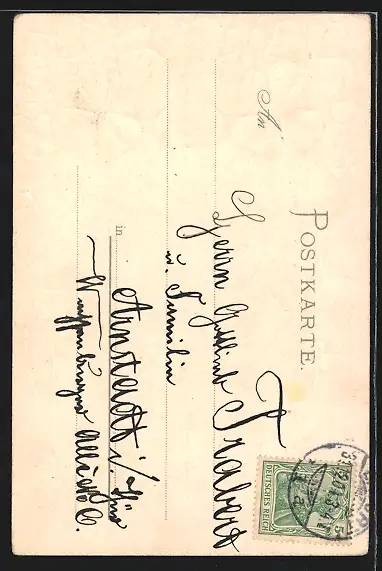 POSTKARTE.
An
Herrn Trabert
u. Familie
in Arnstadt i/Thür
Allee 6.
DEUTSCHES REICH
5